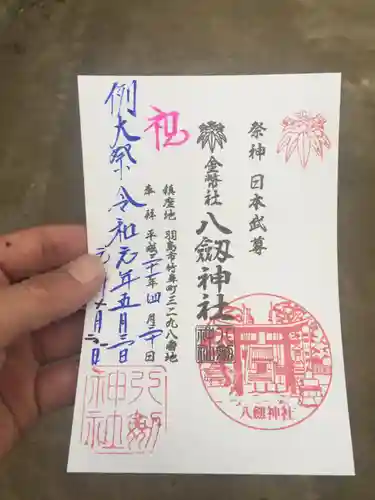 祭神 日本武尊
金幣社 八劔神社
八劔神社
鎮座地 羽島市竹鼻町三二九八番地
奉拝 平成三十一年四月二十日
祝
例大祭 令和元年五月三日
八劔神社
八劔神社